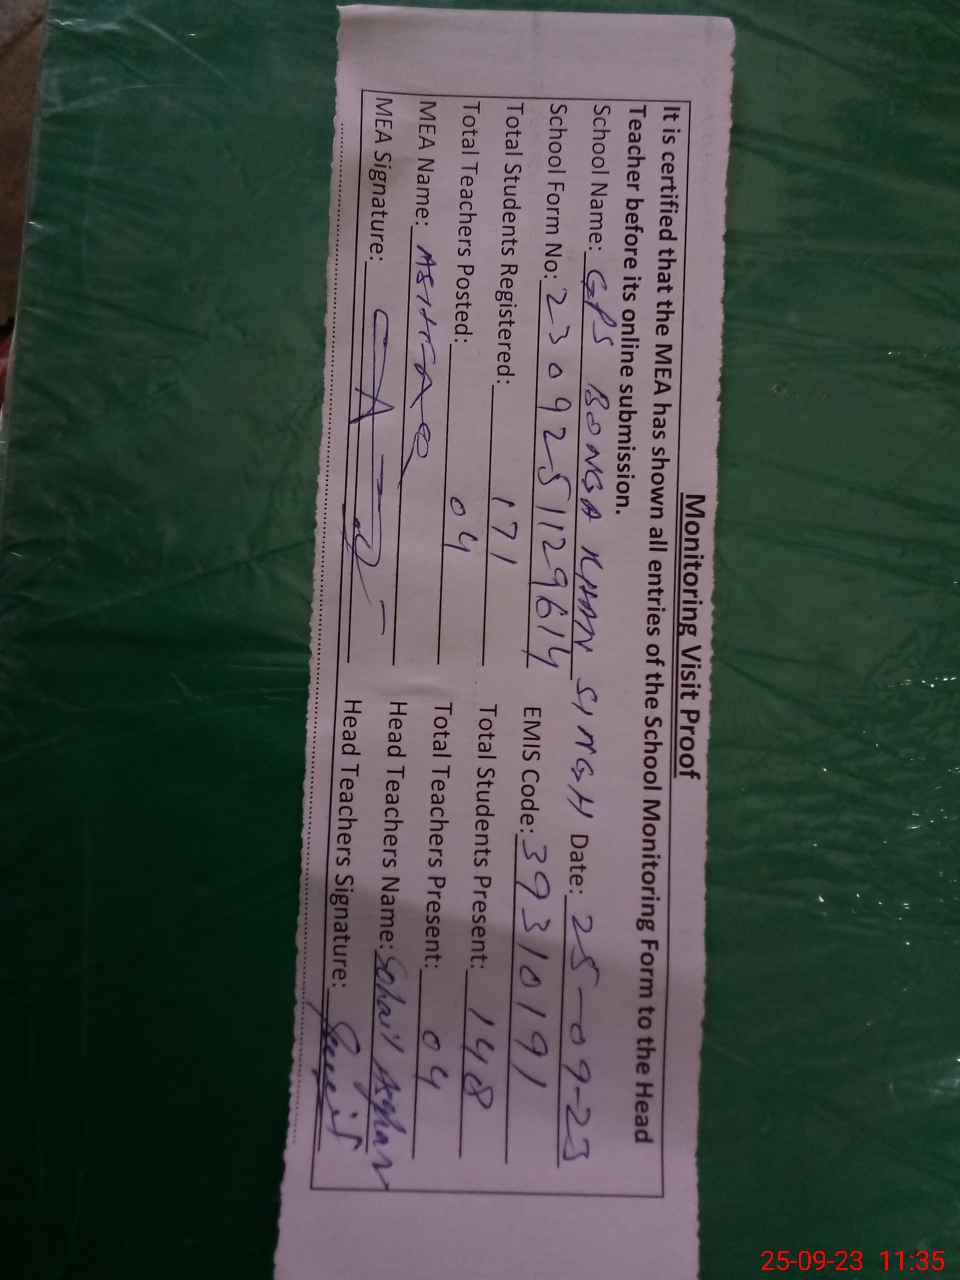 Monitoring Visit Proof
It is certified that the MEA has shown all entries of the School Monitoring Form to the Head
Teacher before its online submission.
School Name: GPS BONGA KHAN SINGH Date: 25-09-23
School Form No: 2309251129614 EMIS Code: 39310191
Total Students Registered: 171 Total Students Present: 148
Total Teachers Posted: 04 Total Teachers Present: 04
MEA Name: ASHFAQ Head Teachers Name: Sohail Asghar
MEA Signature: Head Teachers Signature:
25-09-23 11:35